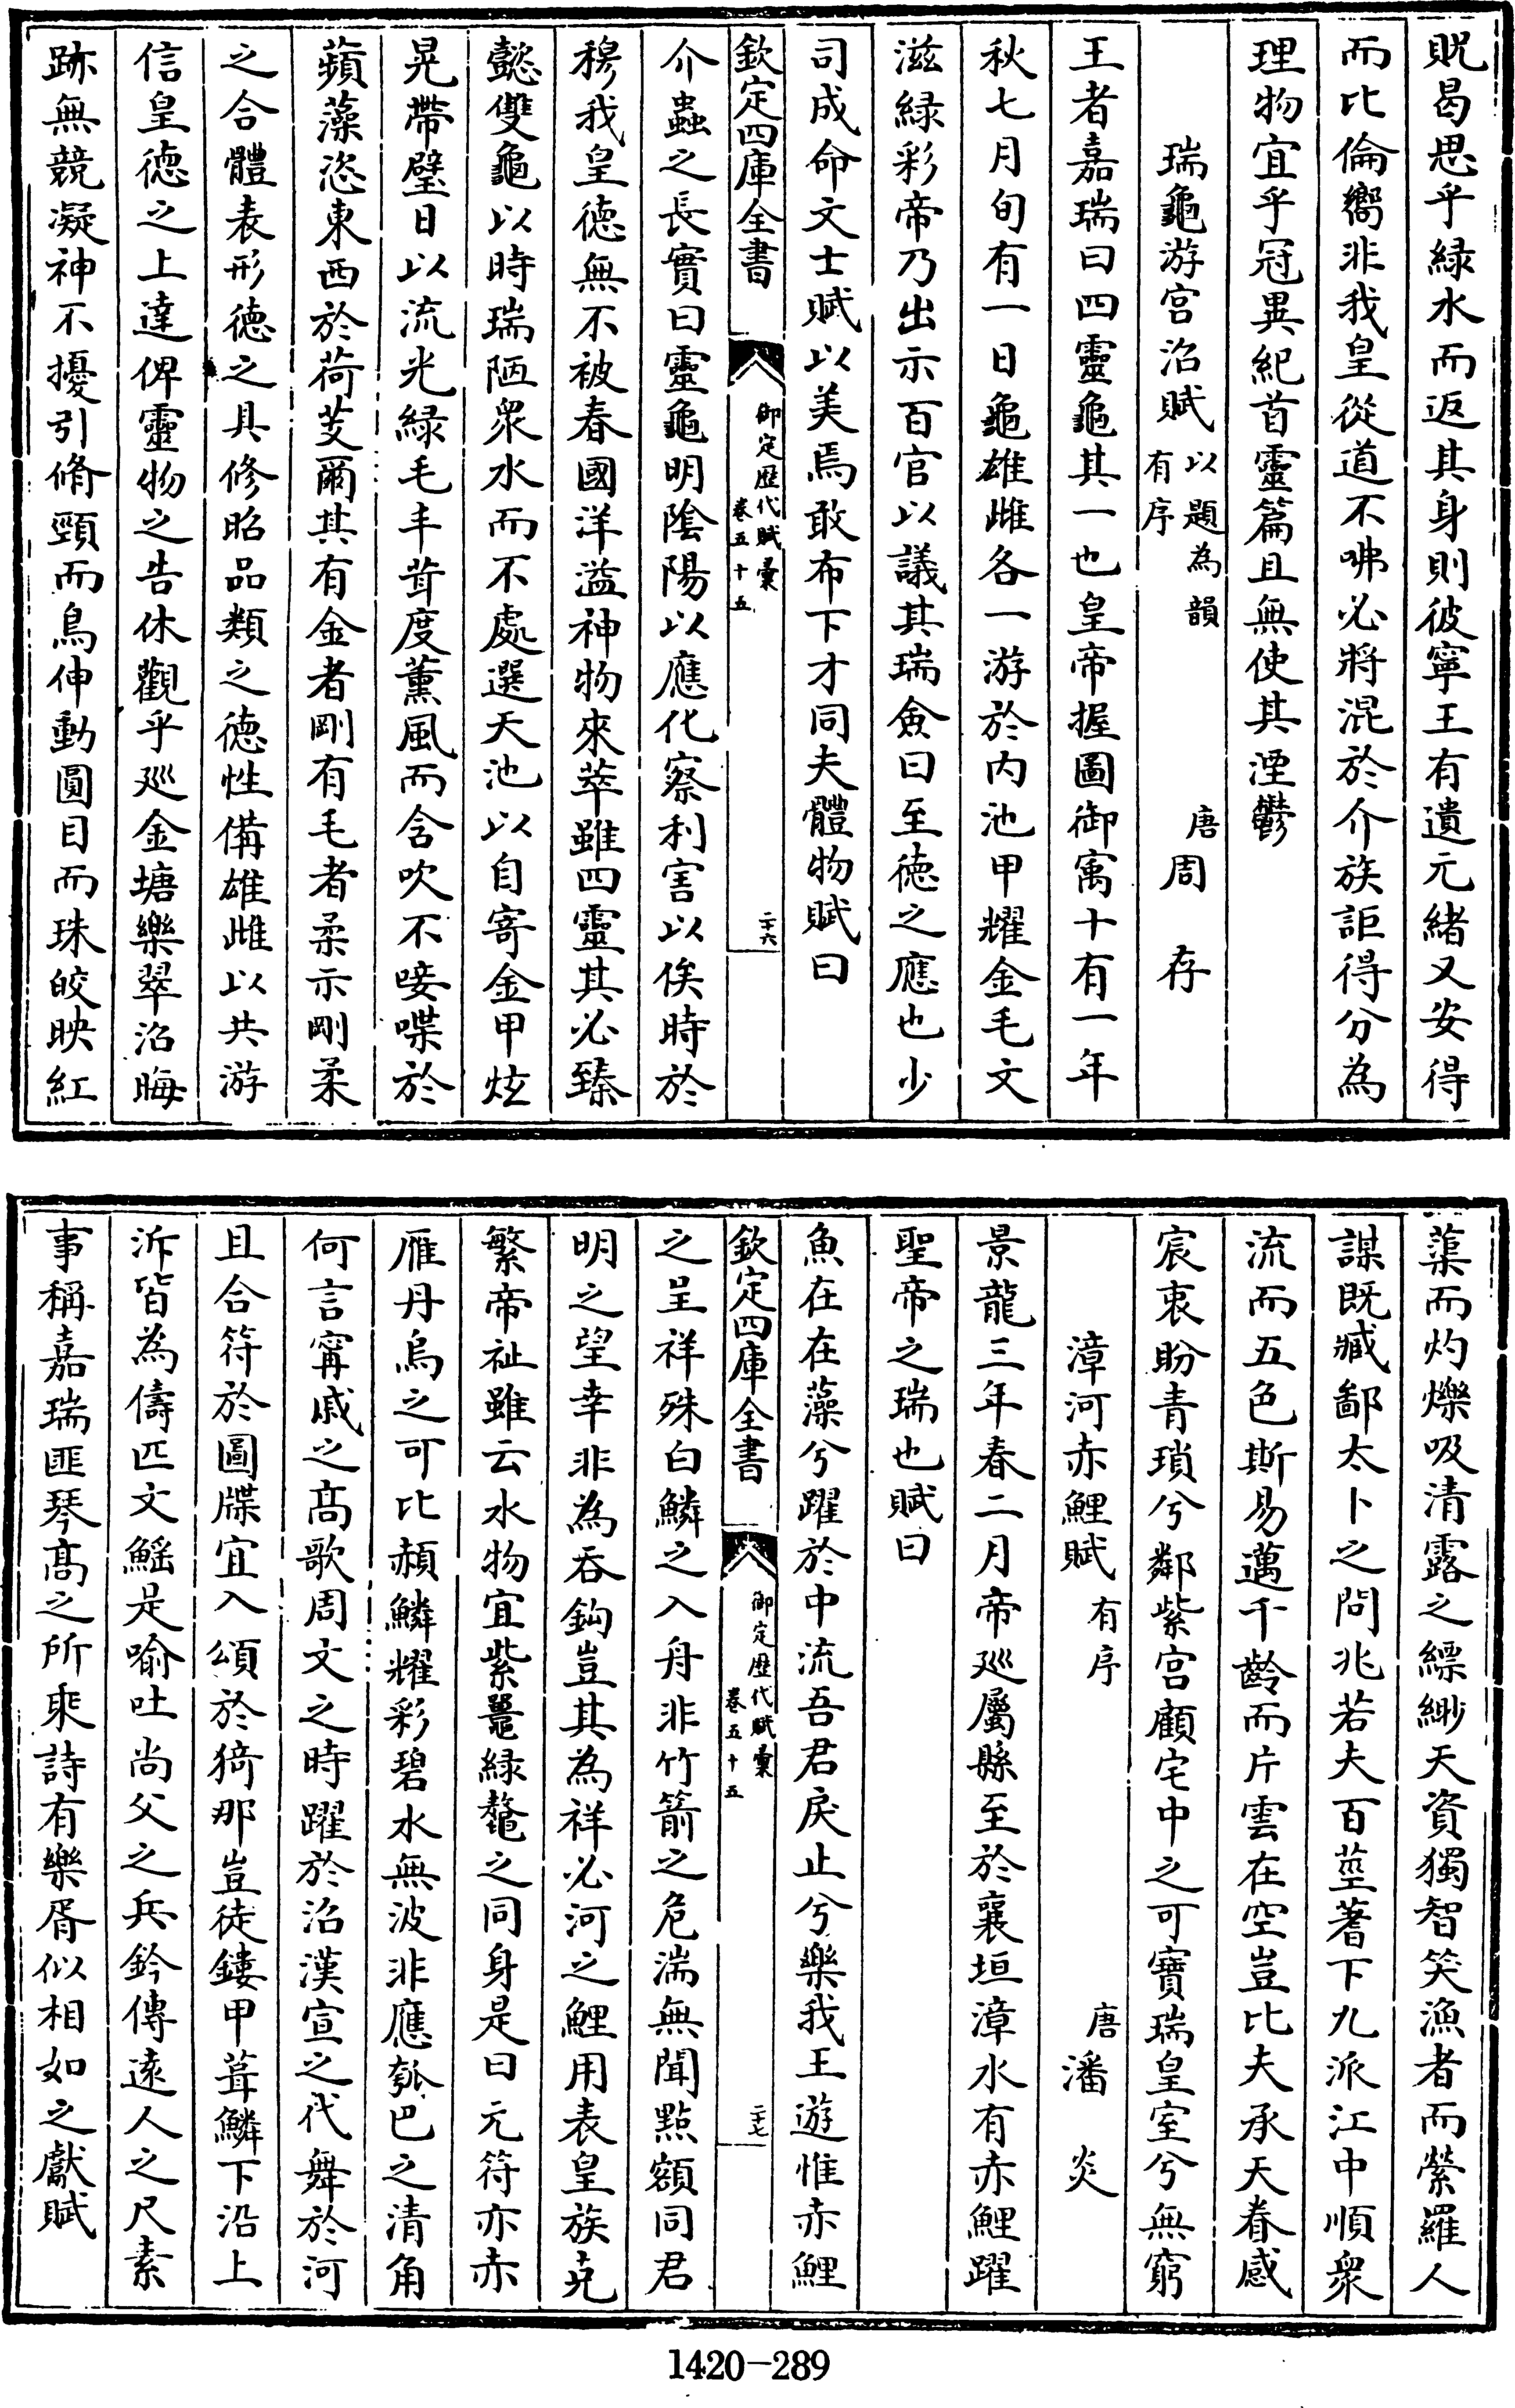 貺曷思乎緑水而返其身則彼寧王有遺元緒又安得
而比倫嚮非我皇從道不咈必將混於介族詎得分為
理物宜乎冠異紀首靈篇且無使其湮鬱
瑞龜游宫沼賦以題為韻有序 唐周存
王者嘉瑞曰四靈龜其一也皇帝握圖御寓十有一年
秋七月旬有一日龜雄雌各一游於内池甲耀金毛文
滋緑彩帝乃出示百官以議其瑞僉曰至徳之應也少
司成命文士賦以美焉敢布下才同夫體物賦曰
欽定四庫全書 御定歴代賦彚卷五十五 二十六
介蟲之長實曰靈龜明隂陽以應化察利害以俟時於
穆我皇徳無不被春國洋溢神物來萃雖四靈其必臻
懿雙龜以時瑞陋衆水而不處選天池以自寄金甲炫
晃帶璧日以流光緑毛丰茸度薰風而含吹不唼喋於
蘋藻恣東西於荷芰爾其有金者剛有毛者柔示剛柔
之合體表形徳之具修昭品類之徳性備雄雌以共游
信皇徳之上達俾靈物之告休觀乎巡金塘樂翠沼晦
跡無競凝神不擾引脩頸而鳥伸動圓目而珠皎映紅
蕖而灼爍吸清露之縹緲天資獨智笑漁者而縈羅人
謀既臧鄙太卜之問兆若夫百莖蓍下九派江中順衆
流而五色斯易邁千齡而片雲在空豈比夫承天眷感
宸衷盼青瑣兮鄰紫宫顧宅中之可寶瑞皇室兮無窮
漳河赤鯉賦有序 唐潘炎
景龍三年春二月帝廵屬縣至於襄垣漳水有赤鯉躍
聖帝之瑞也賦曰
魚在在藻兮躍於中流吾君戾止兮樂我王遊惟赤鯉
欽定四庫全書 御定歴代賦彚卷五十五 二十七
之呈祥殊白鱗之入舟非竹箭之危湍無聞㸃額同君
明之望幸非為吞鈎豈其為祥必河之鯉用表皇族克
繁帝祉雖云水物宜紫鼉緑鼇之同身是曰元符亦赤
雁丹烏之可比頳鱗耀彩碧水無波非應瓠巴之清角
何言甯戚之髙歌周文之時躍於沼漢宣之代舞於河
且合符於圖牒宜入頌於猗那豈徒鏤甲葺鱗下沿上
泝皆為儔匹文鰩是喻吐尚父之兵鈐傳逺人之尺素
事稱嘉瑞匪琴髙之所乘詩有樂胥似相如之獻賦
1420-289